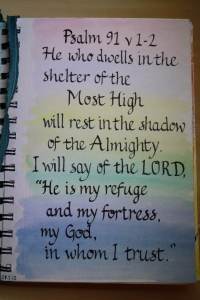 Psalm 91 v 1-2
He who dwells in the
shelter of the
Most High
will rest in the shadow
of the Almighty.
I will say of the LORD,
"He is my refuge
and my fortress,
my God,
in whom I trust."